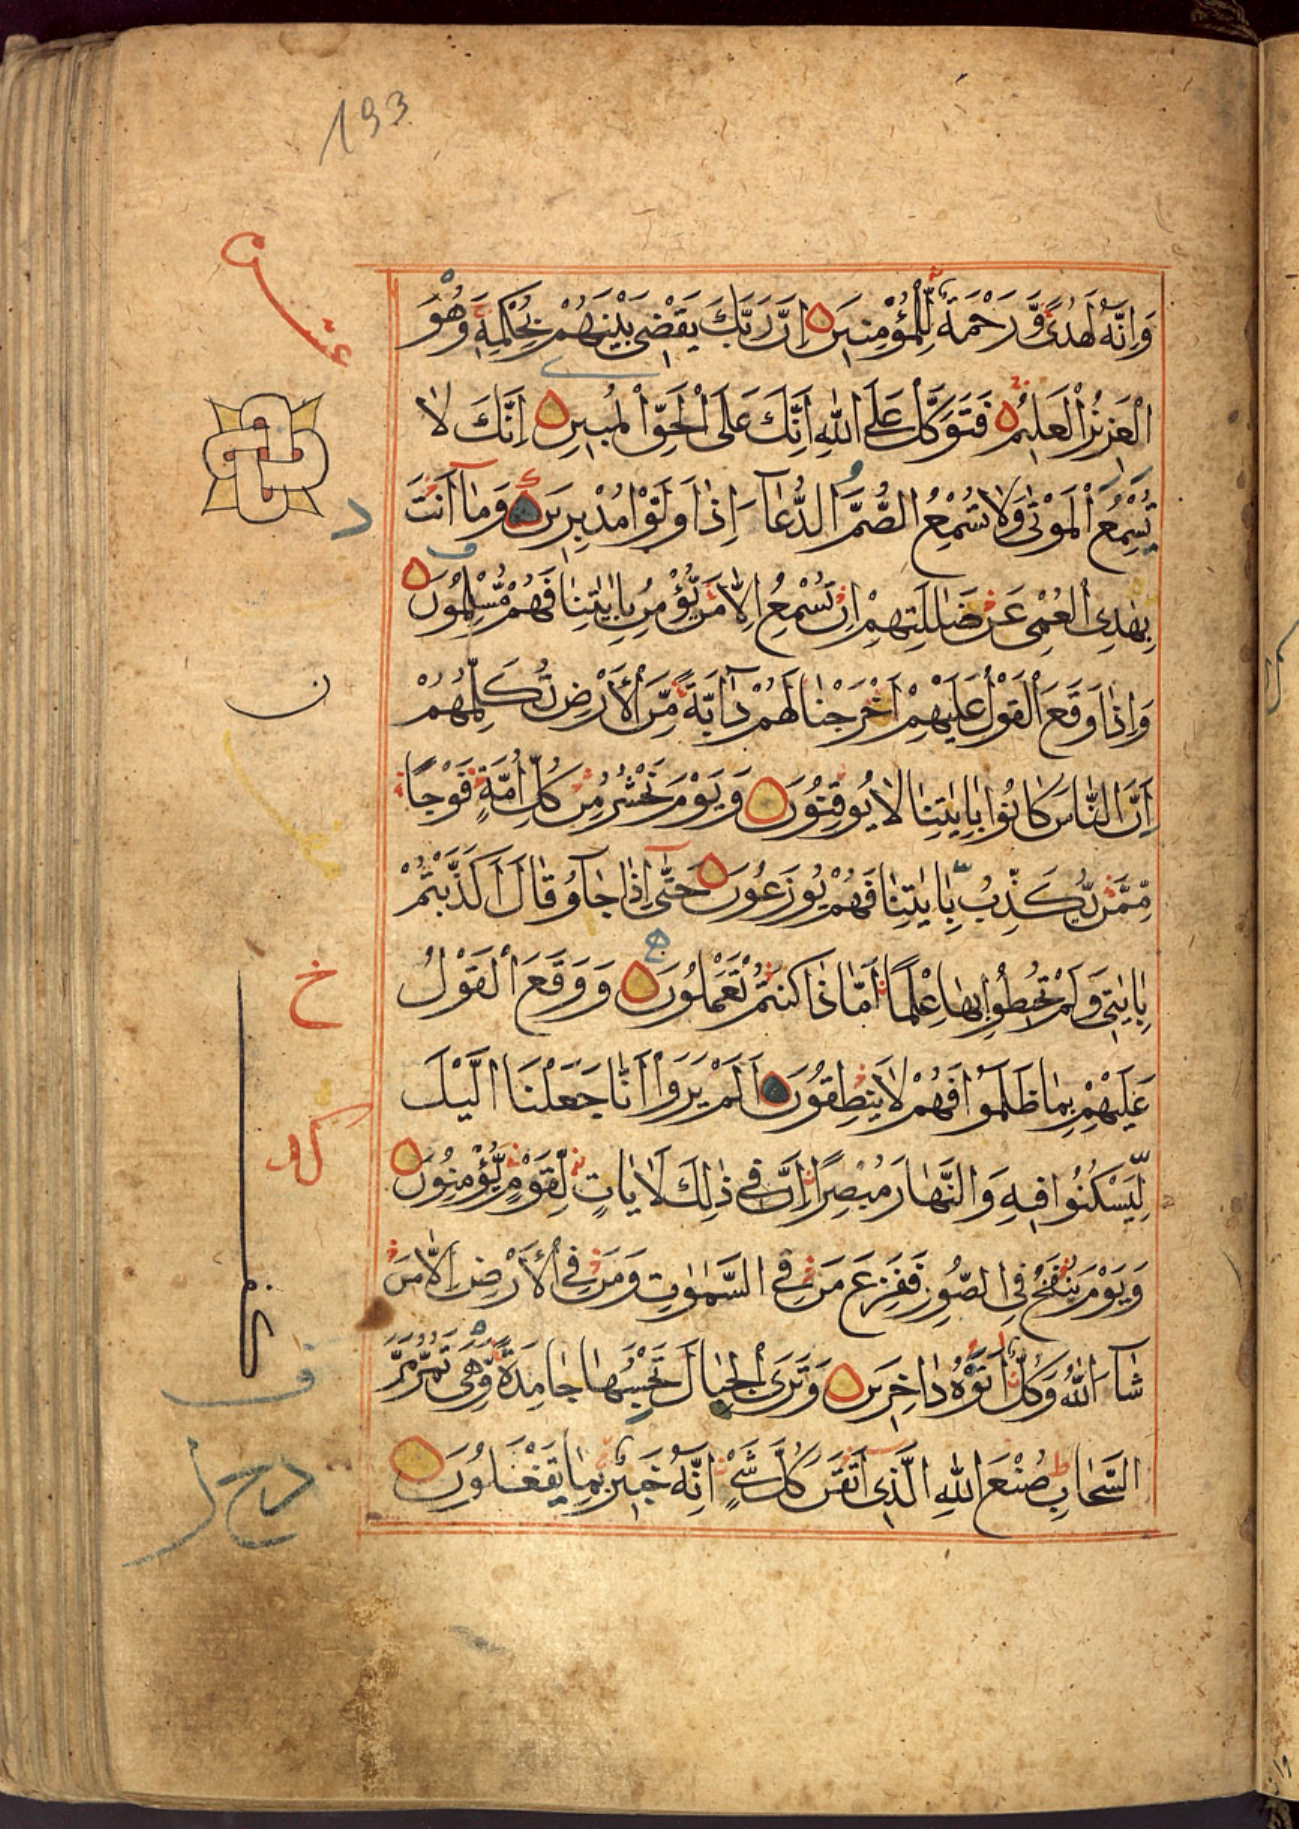 193
وَاِنَّهُ لَهُدًى وَّرَحْمَةٌ لِّلْمُؤْمِنِينَ اِنَّ رَبَّكَ يَقْضِي بَيْنَهُمْ بِحُكْمِهِ وَهُوَ
الْعَزِيزُ الْعَلِيمُ فَتَوَكَّلْ عَلَى اللّٰهِ اِنَّكَ عَلَى الْحَقِّ الْمُبِينِ اِنَّكَ لَا
تُسْمِعُ الْمَوْتٰى وَلَا تُسْمِعُ الصُّمَّ الدُّعَآءَ اِذَا وَلَّوْا مُدْبِرِينَ وَمَآ اَنْتَ
بِهٰدِى الْعُمْىِ عَنْ ضَلٰلَتِهِمْ اِنْ تُسْمِعُ اِلَّا مَنْ يُّؤْمِنُ بِاٰيٰتِنَا فَهُمْ مُّسْلِمُونَ
وَاِذَا وَقَعَ الْقَوْلُ عَلَيْهِمْ اَخْرَجْنَا لَهُمْ دَآبَّةً مِّنَ الْاَرْضِ تُكَلِّمُهُمْ
اِنَّ النَّاسَ كَانُوا بِاٰيٰتِنَا لَا يُوقِنُونَ وَيَوْمَ نَحْشُرُ مِنْ كُلِّ اُمَّةٍ فَوْجًا
مِّمَّنْ يُّكَذِّبُ بِاٰيٰتِنَا فَهُمْ يُوزَعُونَ حَتّٰىٓ اِذَا جَآؤُ قَالَ اَكَذَّبْتُمْ
بِاٰيٰتِى وَلَمْ تُحِيطُوا بِهَا عِلْمًا اَمَّا ذَا كُنْتُمْ تَعْمَلُونَ وَوَقَعَ الْقَوْلُ
عَلَيْهِمْ بِمَا ظَلَمُوا فَهُمْ لَا يَنْطِقُونَ اَلَمْ يَرَوْا اَنَّا جَعَلْنَا الَّيْلَ
لِيَسْكُنُوا فِيهِ وَالنَّهَارَ مُبْصِرًا اِنَّ فِى ذٰلِكَ لَاٰيَاتٍ لِّقَوْمٍ يُّؤْمِنُونَ
وَيَوْمَ يُنْفَخُ فِى الصُّورِ فَفَزِعَ مَنْ فِى السَّمٰوٰتِ وَمَنْ فِى الْاَرْضِ اِلَّا مَنْ
شَآءَ اللّٰهُ وَكُلٌّ اَتَوْهُ دَاخِرِينَ وَتَرَى الْجِبَالَ تَحْسَبُهَا جَامِدَةً وَّهِىَ تَمُرُّ مَرَّ
السَّحَابِ صُنْعَ اللّٰهِ الَّذِى اَتْقَنَ كُلَّ شَىْءٍ اِنَّهُ خَبِيرٌ بِمَا يَفْعَلُونَ
عشر
د
ن
خ
ف